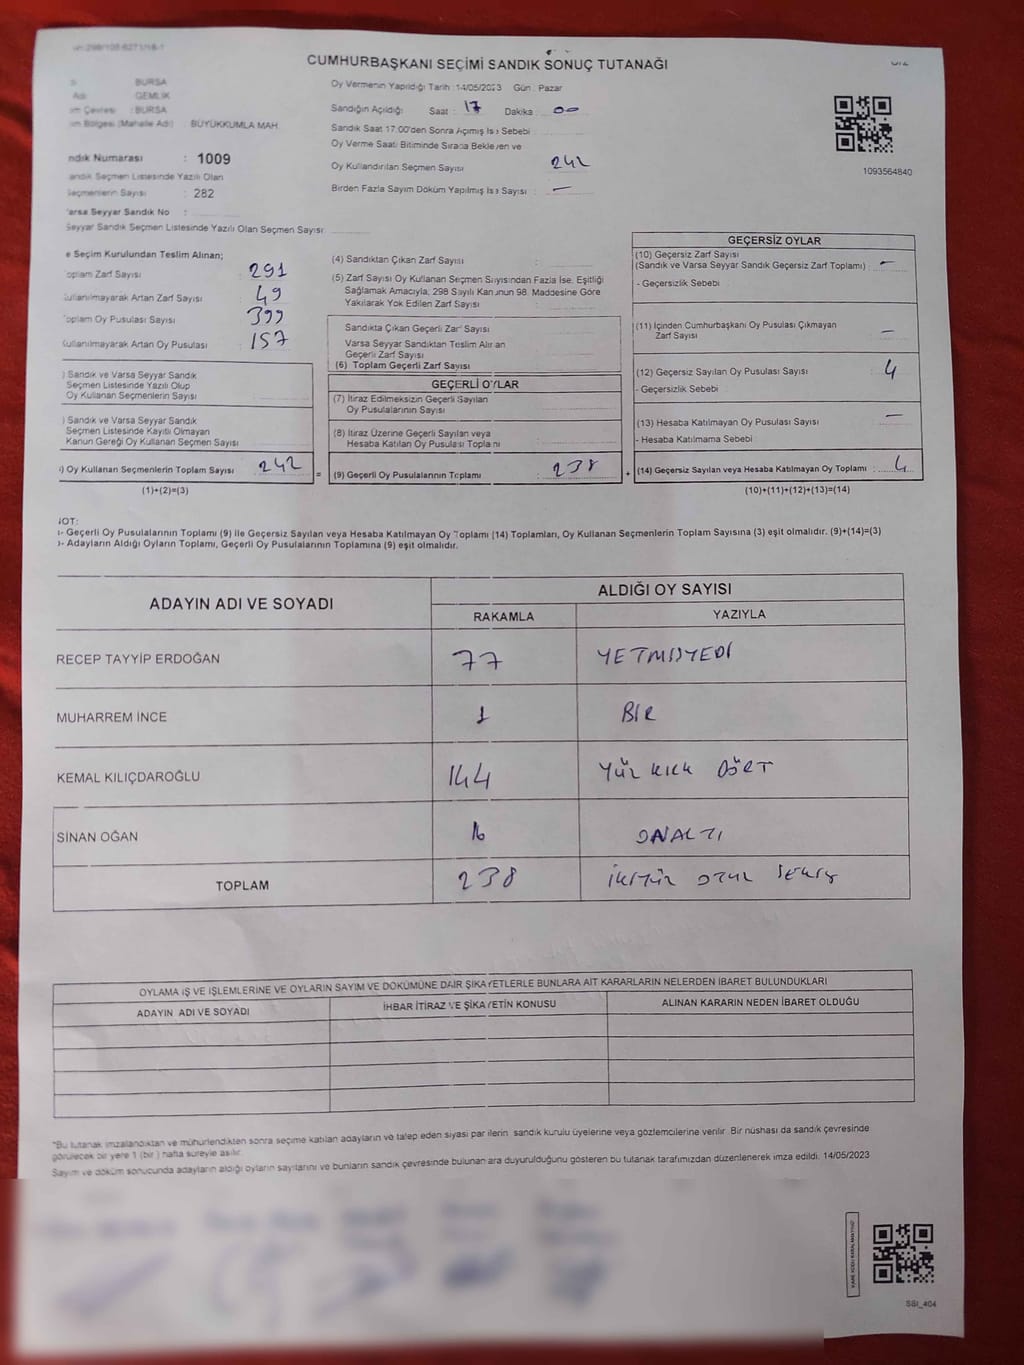 CUMHURBAŞKANI SEÇİMİ SANDIK SONUÇ TUTANAĞI
BURSA
GEMLİK
BURSA
BÜYÜKKUMLA MAH.
ndık Numarası : 1009
andık Seçmen Listesinde Yazılı Olan
Seçmenlerin Sayısı : 282
Varsa Seyyar Sandık No :
Seyyar Sandık Seçmen Listesinde Yazılı Olan Seçmen Sayısı
Oy Vermenin Yapıldığı Tarih : 14/05/2023 Gün : Pazar
Sandığın Açıldığı Saat : 17 Dakika : 00
Sandık Saat 17:00'den Sonra Açılmış İse Sebebi
Oy Verme Saati Bitiminde Sırada Bekleyen ve
Oy Kullandırılan Seçmen Sayısı 242
Birden Fazla Sayım Döküm Yapılmış İse Sayısı : —
1093564840
e Seçim Kurulundan Teslim Alınan;
Toplam Zarf Sayısı 291
Kullanılmayarak Artan Zarf Sayısı 49
Toplam Oy Pusulası Sayısı 399
Kullanılmayarak Artan Oy Pusulası 157
) Sandık ve Varsa Seyyar Sandık
Seçmen Listesinde Yazılı Olup
Oy Kullanan Seçmenlerin Sayısı
) Sandık ve Varsa Seyyar Sandık
Seçmen Listesinde Kayıtlı Olmayan
Kanun Gereği Oy Kullanan Seçmen Sayısı
) Oy Kullanan Seçmenlerin Toplam Sayısı 242 =
(1)+(2)=(3)
(4) Sandıktan Çıkan Zarf Sayısı
(5) Zarf Sayısı Oy Kullanan Seçmen Sayısından Fazla İse, Eşitliği
Sağlamak Amacıyla, 298 Sayılı Kanunun 98. Maddesine Göre
Yakılarak Yok Edilen Zarf Sayısı
Sandıkta Çıkan Geçerli Zarf Sayısı
Varsa Seyyar Sandıktan Teslim Alınan
Geçerli Zarf Sayısı
(6) Toplam Geçerli Zarf Sayısı
GEÇERLİ OYLAR
(7) İtiraz Edilmeksizin Geçerli Sayılan
Oy Pusulalarının Sayısı
(8) İtiraz Üzerine Geçerli Sayılan veya
Hesaba Katılan Oy Pusulası Toplamı
(9) Geçerli Oy Pusulalarının Toplamı : 238 +
GEÇERSİZ OYLAR
(10) Geçersiz Zarf Sayısı
(Sandık ve Varsa Seyyar Sandık Geçersiz Zarf Toplamı) : —
- Geçersizlik Sebebi
(11) İçinden Cumhurbaşkanı Oy Pusulası Çıkmayan
Zarf Sayısı —
(12) Geçersiz Sayılan Oy Pusulası Sayısı 4
- Geçersizlik Sebebi
(13) Hesaba Katılmayan Oy Pusulası Sayısı —
- Hesaba Katılmama Sebebi
(14) Geçersiz Sayılan veya Hesaba Katılmayan Oy Toplamı : 4
(10)+(11)+(12)+(13)=(14)
NOT:
- Geçerli Oy Pusulalarının Toplamı (9) İle Geçersiz Sayılan veya Hesaba Katılmayan Oy Toplamı (14) Toplamları, Oy Kullanan Seçmenlerin Toplam Sayısına (3) eşit olmalıdır. (9)+(14)=(3)
- Adayların Aldığı Oyların Toplamı, Geçerli Oy Pusulalarının Toplamına (9) eşit olmalıdır.
ADAYIN ADI VE SOYADI ALDIĞI OY SAYISI
RAKAMLA YAZIYLA
RECEP TAYYİP ERDOĞAN 77 YETMİŞYEDİ
MUHARREM İNCE 1 BİR
KEMAL KILIÇDAROĞLU 144 YÜZ KIRK DÖRT
SİNAN OĞAN 16 ONALTI
TOPLAM 238 İKİYÜZ OTUZ SEKİZ
OYLAMA İŞ VE İŞLEMLERİNE VE OYLARIN SAYIM VE DÖKÜMÜNE DAİR ŞİKAYETLERLE BUNLARA AİT KARARLARIN NELERDEN İBARET BULUNDUKLARI
ADAYIN ADI VE SOYADI İHBAR İTİRAZ VE ŞİKAYETİN KONUSU ALINAN KARARIN NEDEN İBARET OLDUĞU
*Bu tutanak imzalandıktan ve mühürlendikten sonra seçime katılan adayların ve talep eden siyasi partilerin sandık kurulu üyelerine veya gözlemcilerine verilir. Bir nüshası da sandık çevresinde
görülecek bir yere 1 (bir) hafta süreyle asılır.
Sayım ve döküm sonucunda adayların aldığı oyların sayılarını ve bunların sandık çevresinde bulunanlara duyurulduğunu gösteren bu tutanak tarafımızdan düzenlenerek imza edildi. 14/05/2023
SSI_404